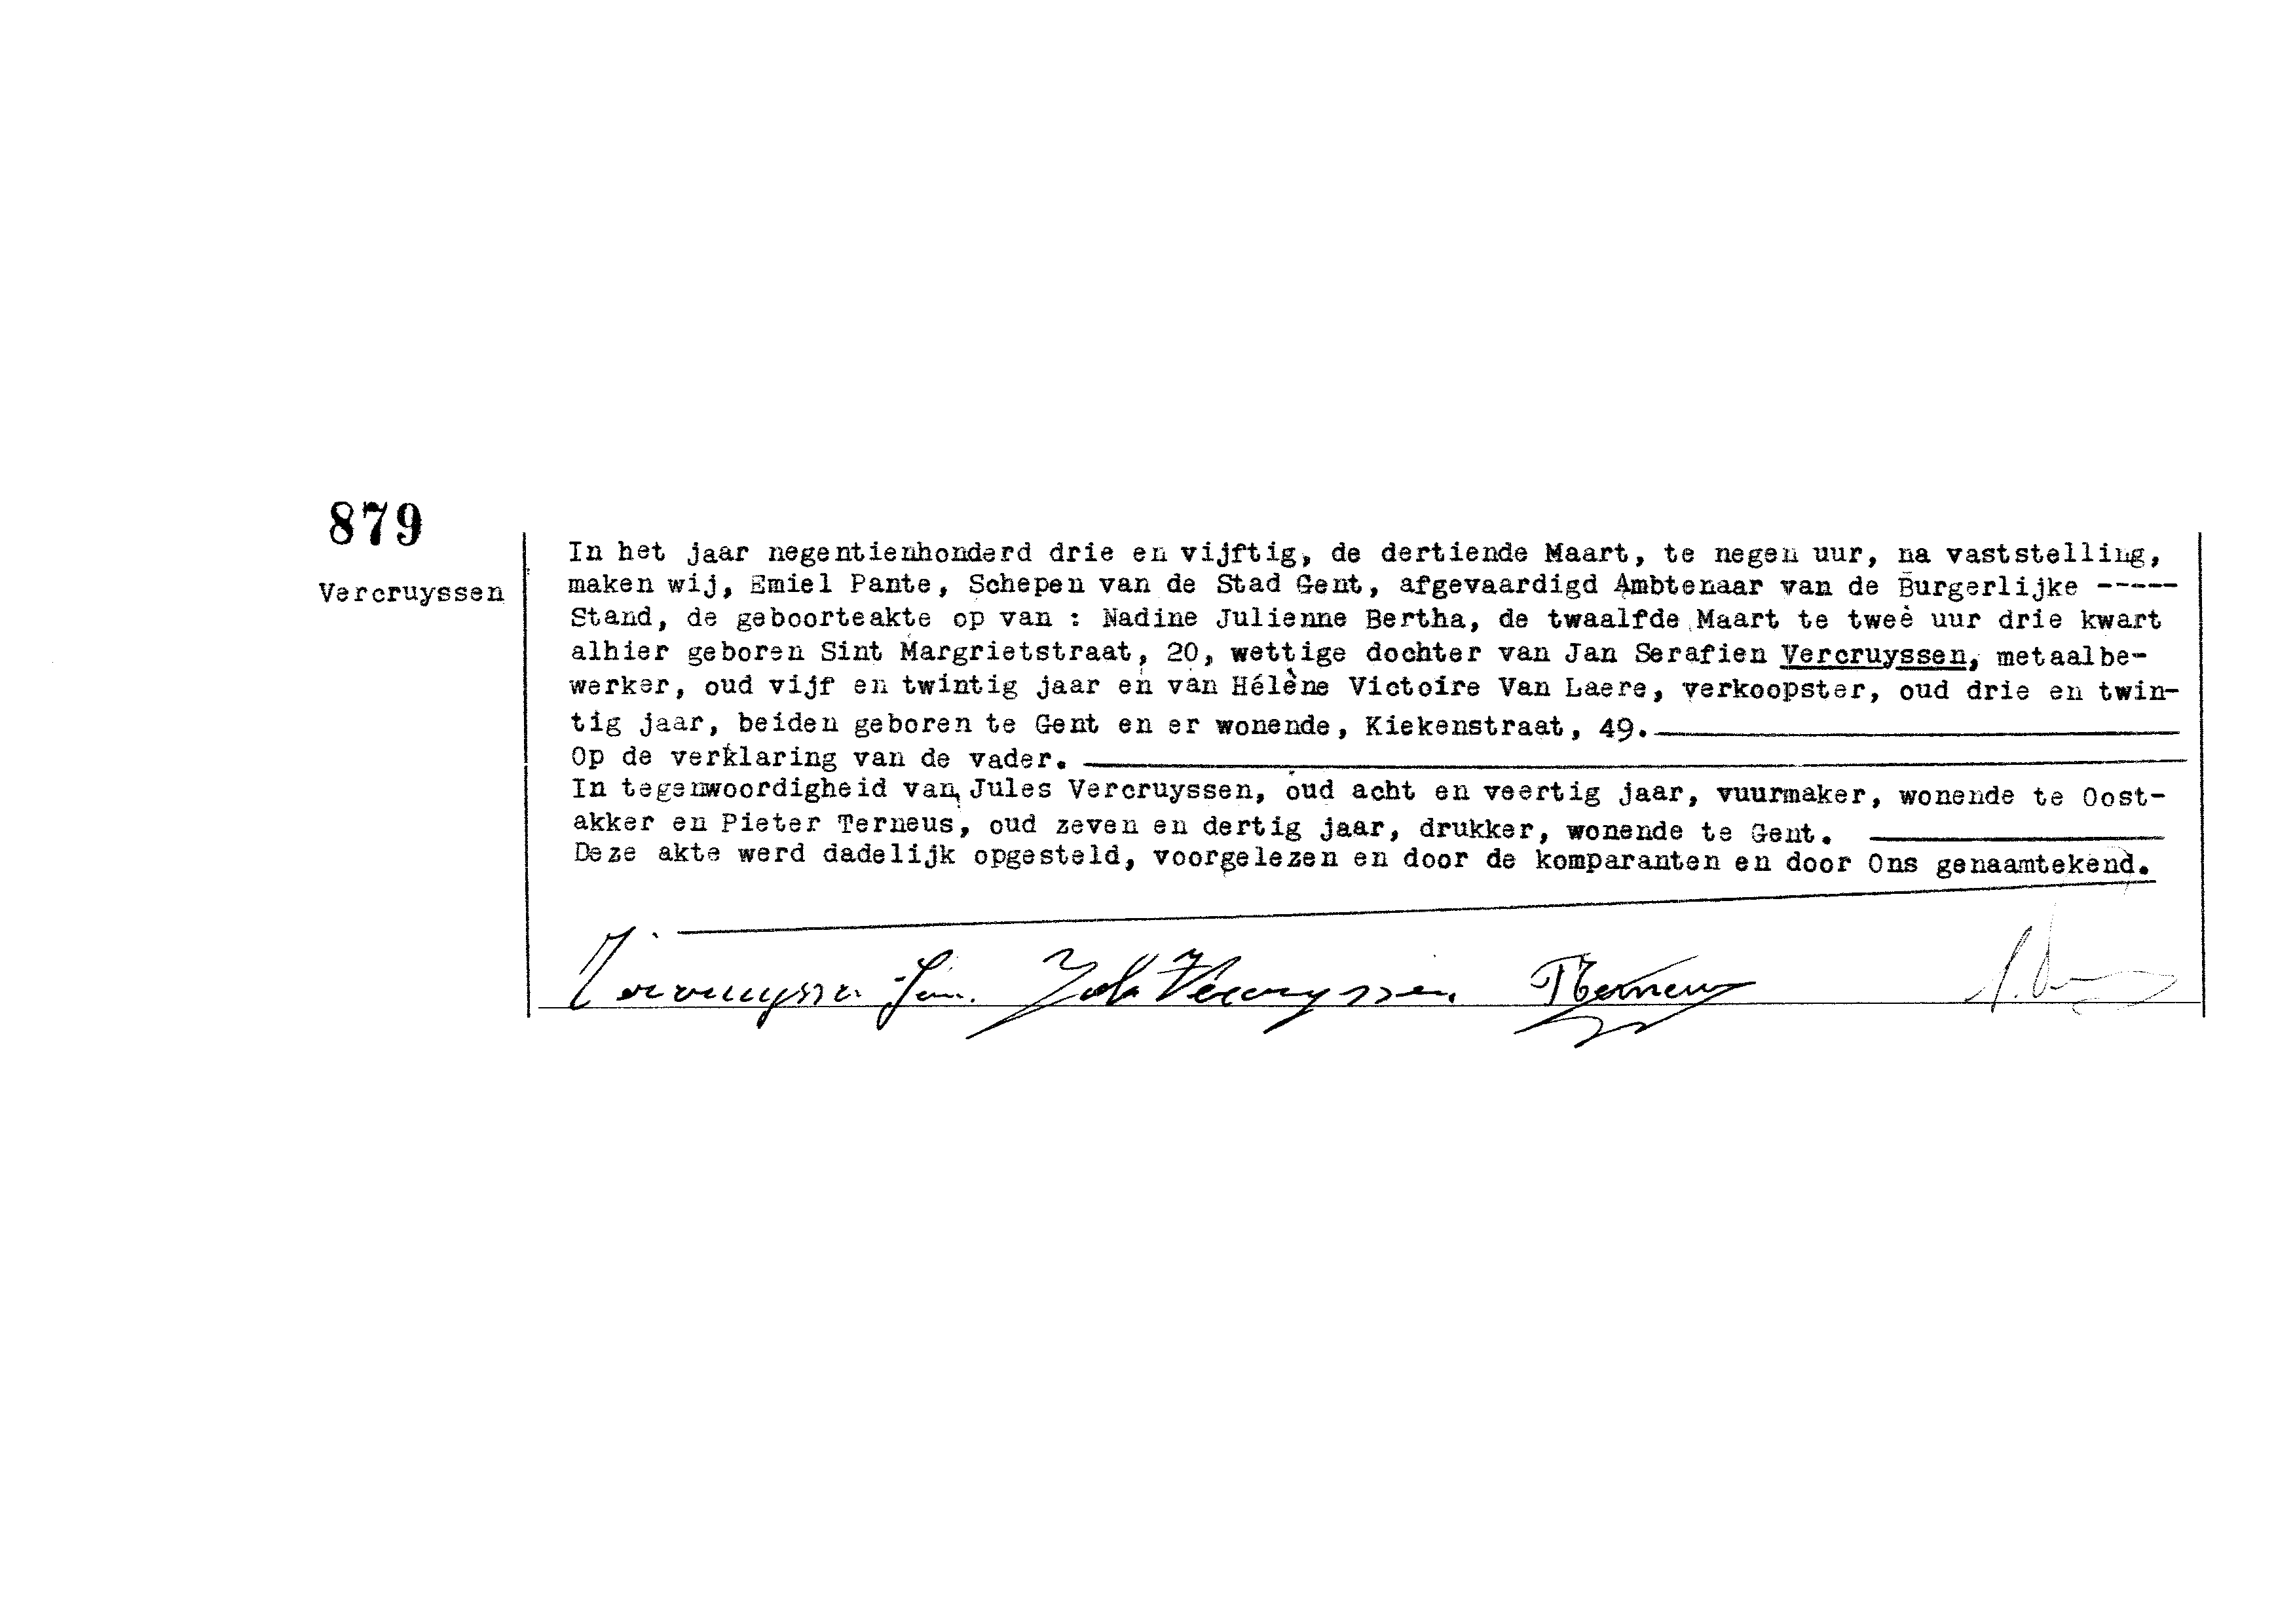 879
Vercruyssen
In het jaar negentienhonderd drie en vijftig, de dertiende Maart, te negen uur, na vaststelling,
maken wij, Emiel Pante, Schepen van de Stad Gent, afgevaardigd Ambtenaar van de Burgerlijke -----
Stand, de geboorteakte op van : Nadine Julienne Bertha, de twaalfde Maart te twee uur drie kwart
alhier geboren Sint Margrietstraat, 20, wettige dochter van Jan Serafien Vercruyssen, metaalbe-
werker, oud vijf en twintig jaar en van Hélène Victoire Van Laere, verkoopster, oud drie en twin-
tig jaar, beiden geboren te Gent en er wonende, Kiekenstraat, 49.
Op de verklaring van de vader.
In tegenwoordigheid van Jules Vercruyssen, oud acht en veertig jaar, vuurmaker, wonende te Oost-
akker en Pieter Terneus, oud zeven en dertig jaar, drukker, wonende te Gent.
Deze akte werd dadelijk opgesteld, voorgelezen en door de komparanten en door Ons genaamtekend.
Vercruyssen Jan. Vercruyssen. PTerneus